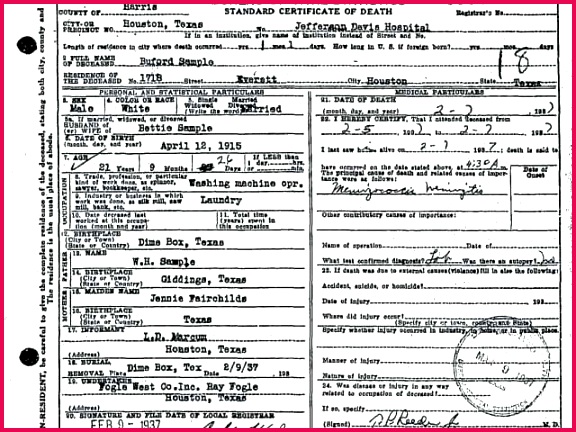 COUNTY OF Harris
STANDARD CERTIFICATE OF DEATH
Registrar's No.
CITY OR
PRECINCT NO. Houston, Texas
Jefferson Davis Hospital
If in an institution, give name of institution instead of Street and No.
Length of residence in city where death occurred days. How long in U. S. if foreign born? yrs. mos. days.
2 FULL NAME
OF DECEASED Buford Sample
18
RESIDENCE OF
THE DECEASED No. 1718 Street Everett City Houston State Texas
PERSONAL AND STATISTICAL PARTICULARS
3. SEX
Male
4. COLOR OR RACE
White
5. Single Married
Widowed Divorced
(Write the word) Married
5a. If married, widowed, or divorced
HUSBAND OF
(or) WIFE OF Bettie Sample
6. DATE OF BIRTH
(month, day, and year) April 12, 1915
7. AGE
21 Years 9 Months 26 Days
If LESS than
1 day, hrs.
or min.
OCCUPATION
8. Trade, profession, or particular
kind of work done, as spinner,
sawyer, bookkeeper, etc. Washing machine opr.
9. Industry or business in which
work was done, as silk mill, saw
mill, bank, etc. Laundry
10. Date deceased last
worked at this occupa-
tion (month and year)
11. Total time (years)
spent in this
occupation
12. BIRTHPLACE
(City or Town)
(State or Country) Dime Box, Texas
FATHER
13. NAME
W.H. Sample
14. BIRTHPLACE
(City or Town)
(State or Country) Giddings, Texas
MOTHER
15. MAIDEN NAME
Jennie Fairchilds
16. BIRTHPLACE
(City or Town)
(State or Country) Texas
17. INFORMANT
L.D. Marcum
(Address) Houston, Texas
18. BURIAL
REMOVAL Place Dime Box, Tex Date 2/9/37 193
19. UNDERTAKER
Fogle West Co.Inc. Ray Fogle
(Address) Houston, Texas
20. SIGNATURE AND FILE DATE OF LOCAL REGISTRAR
FEB 9 - 1937
MEDICAL PARTICULARS
21. DATE OF DEATH
(month, day, and year) 2-7 1937
22. I HEREBY CERTIFY, That I attended deceased from
2-5 1937 to 2-7 1937
I last saw h alive on 2-7 1937, death is said to
have occurred on the date stated above, at 4:30 A m.
The principal cause of death and related causes of impor-
tance were as follows:
Date of
Onset
Meningitis
Other contributory causes of importance:
Name of operation Date of
What test confirmed diagnosis? Lab Was there an autopsy? no
23. If death was due to external causes (violence) fill in also the following:
Accident, suicide, or homicide?
Date of injury 193
Where did injury occur?
(Specify city or town, county and State)
Specify whether injury occurred in industry, in home, or in public place.
Manner of injury
Nature of injury
24. Was disease or injury in any way
related to occupation of deceased?
If so, specify
(Signed) M. D.
N-RESIDENT, be careful to give the complete residence of the deceased, stating both city, county and
The residence is the usual place of abode.